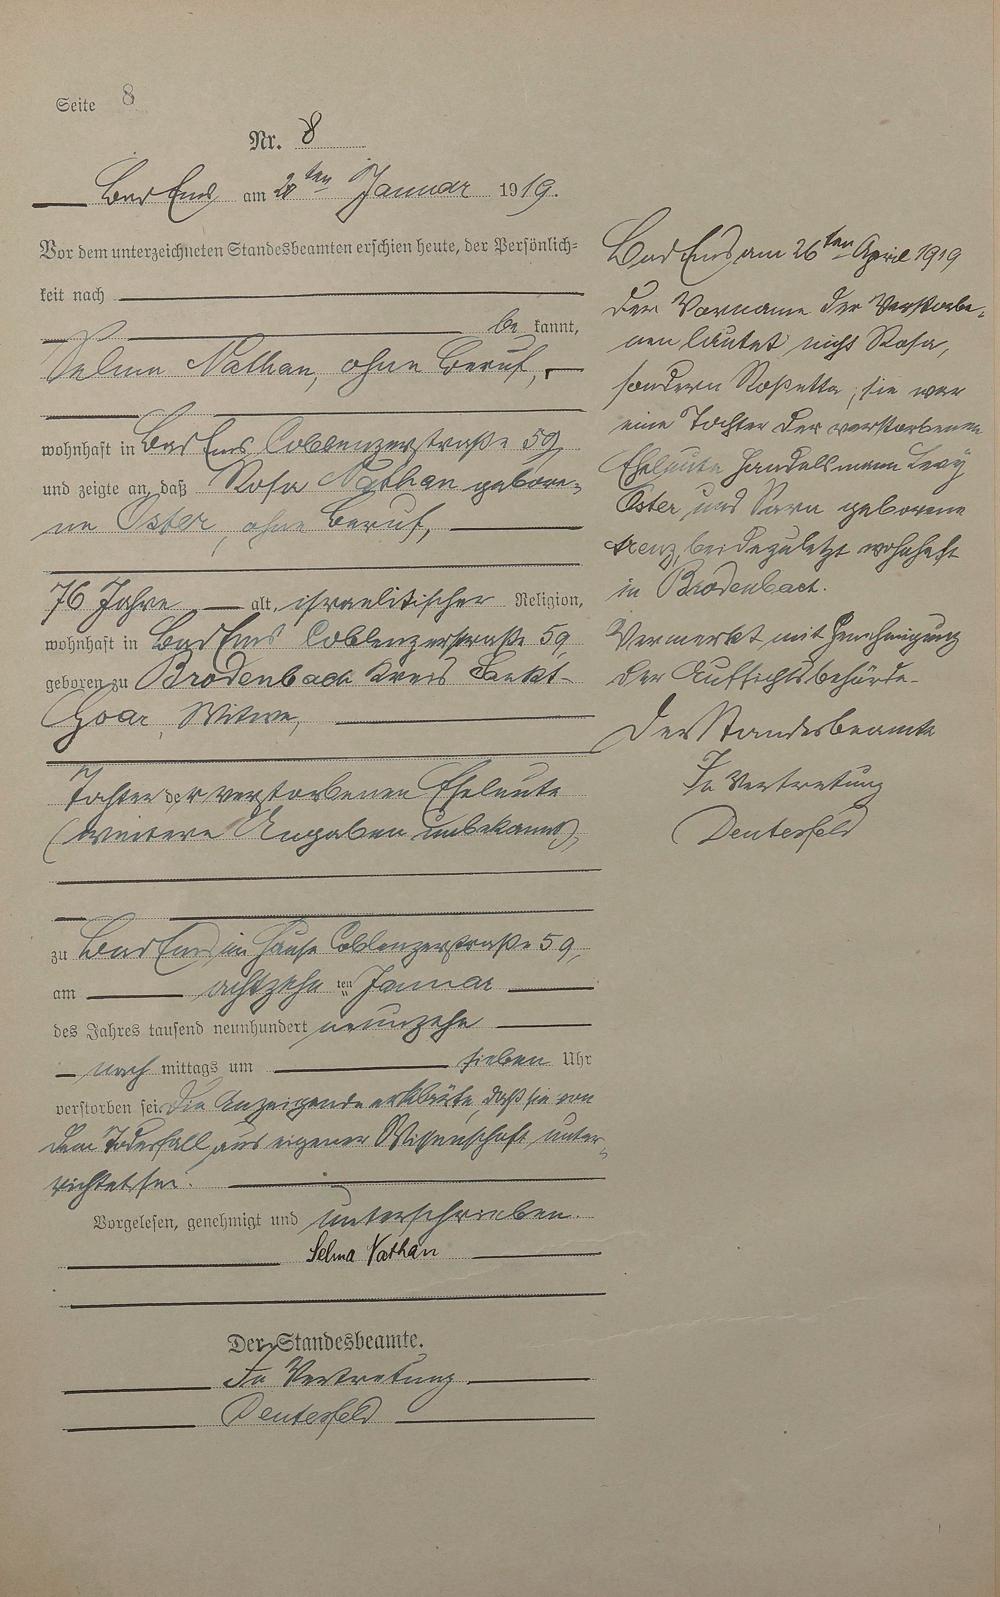 Seite 8
Nr. 8
Bad Ems am 20ten Januar 1919.
Vor dem unterzeichneten Standesbeamten erschien heute, der Persönlich=
keit nach
be kannt,
Selma Nathan, ohne Beruf,
wohnhaft in Bad Ems Coblenzerstraße 59
und zeigte an, daß Rosa Nathan gebore=
ne Oster, ohne Beruf,
76 Jahre alt, israelitischer Religion,
wohnhaft in Bad Ems Coblenzerstraße 59,
geboren zu Brodenbach Kreis Sankt-
Goar, Witwe,
Tochter der verstorbenen Eheleute
(weitere Angaben unbekannt)
zu Bad Ems im Hause Coblenzerstraße 59,
am achtzehn ten Januar
des Jahres tausend neunhundert neunzehn
nach mittags um sieben Uhr
verstorben sei. Die Anzeigende erklärte, daß sie von
dem Todesfall aus eigener Wissenschaft unter=
richtet sei.
Vorgelesen, genehmigt und unterschrieben.
Selma Nathan
Der Standesbeamte.
In Vertretung
Deuterfeld
Bad Ems am 26ten April 1919
Der Vorname der Verstorbe=
nen lautet nicht Rosa,
sondern Rosetta, sie war
eine Tochter der verstorbenen
Eheleute Handelsmann Levy
Oster und Sara geborene
beide zuletzt wohnhaft
in Brodenbach.
Vermerkt mit Genehmigung
der Aufsichtsbehörde.
Der Standesbeamte
In Vertretung
Deuterfeld